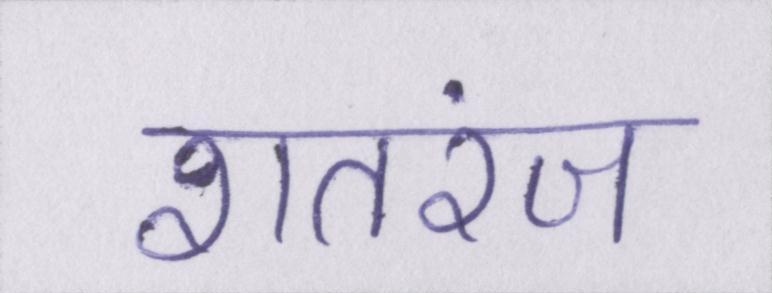 शतरंज